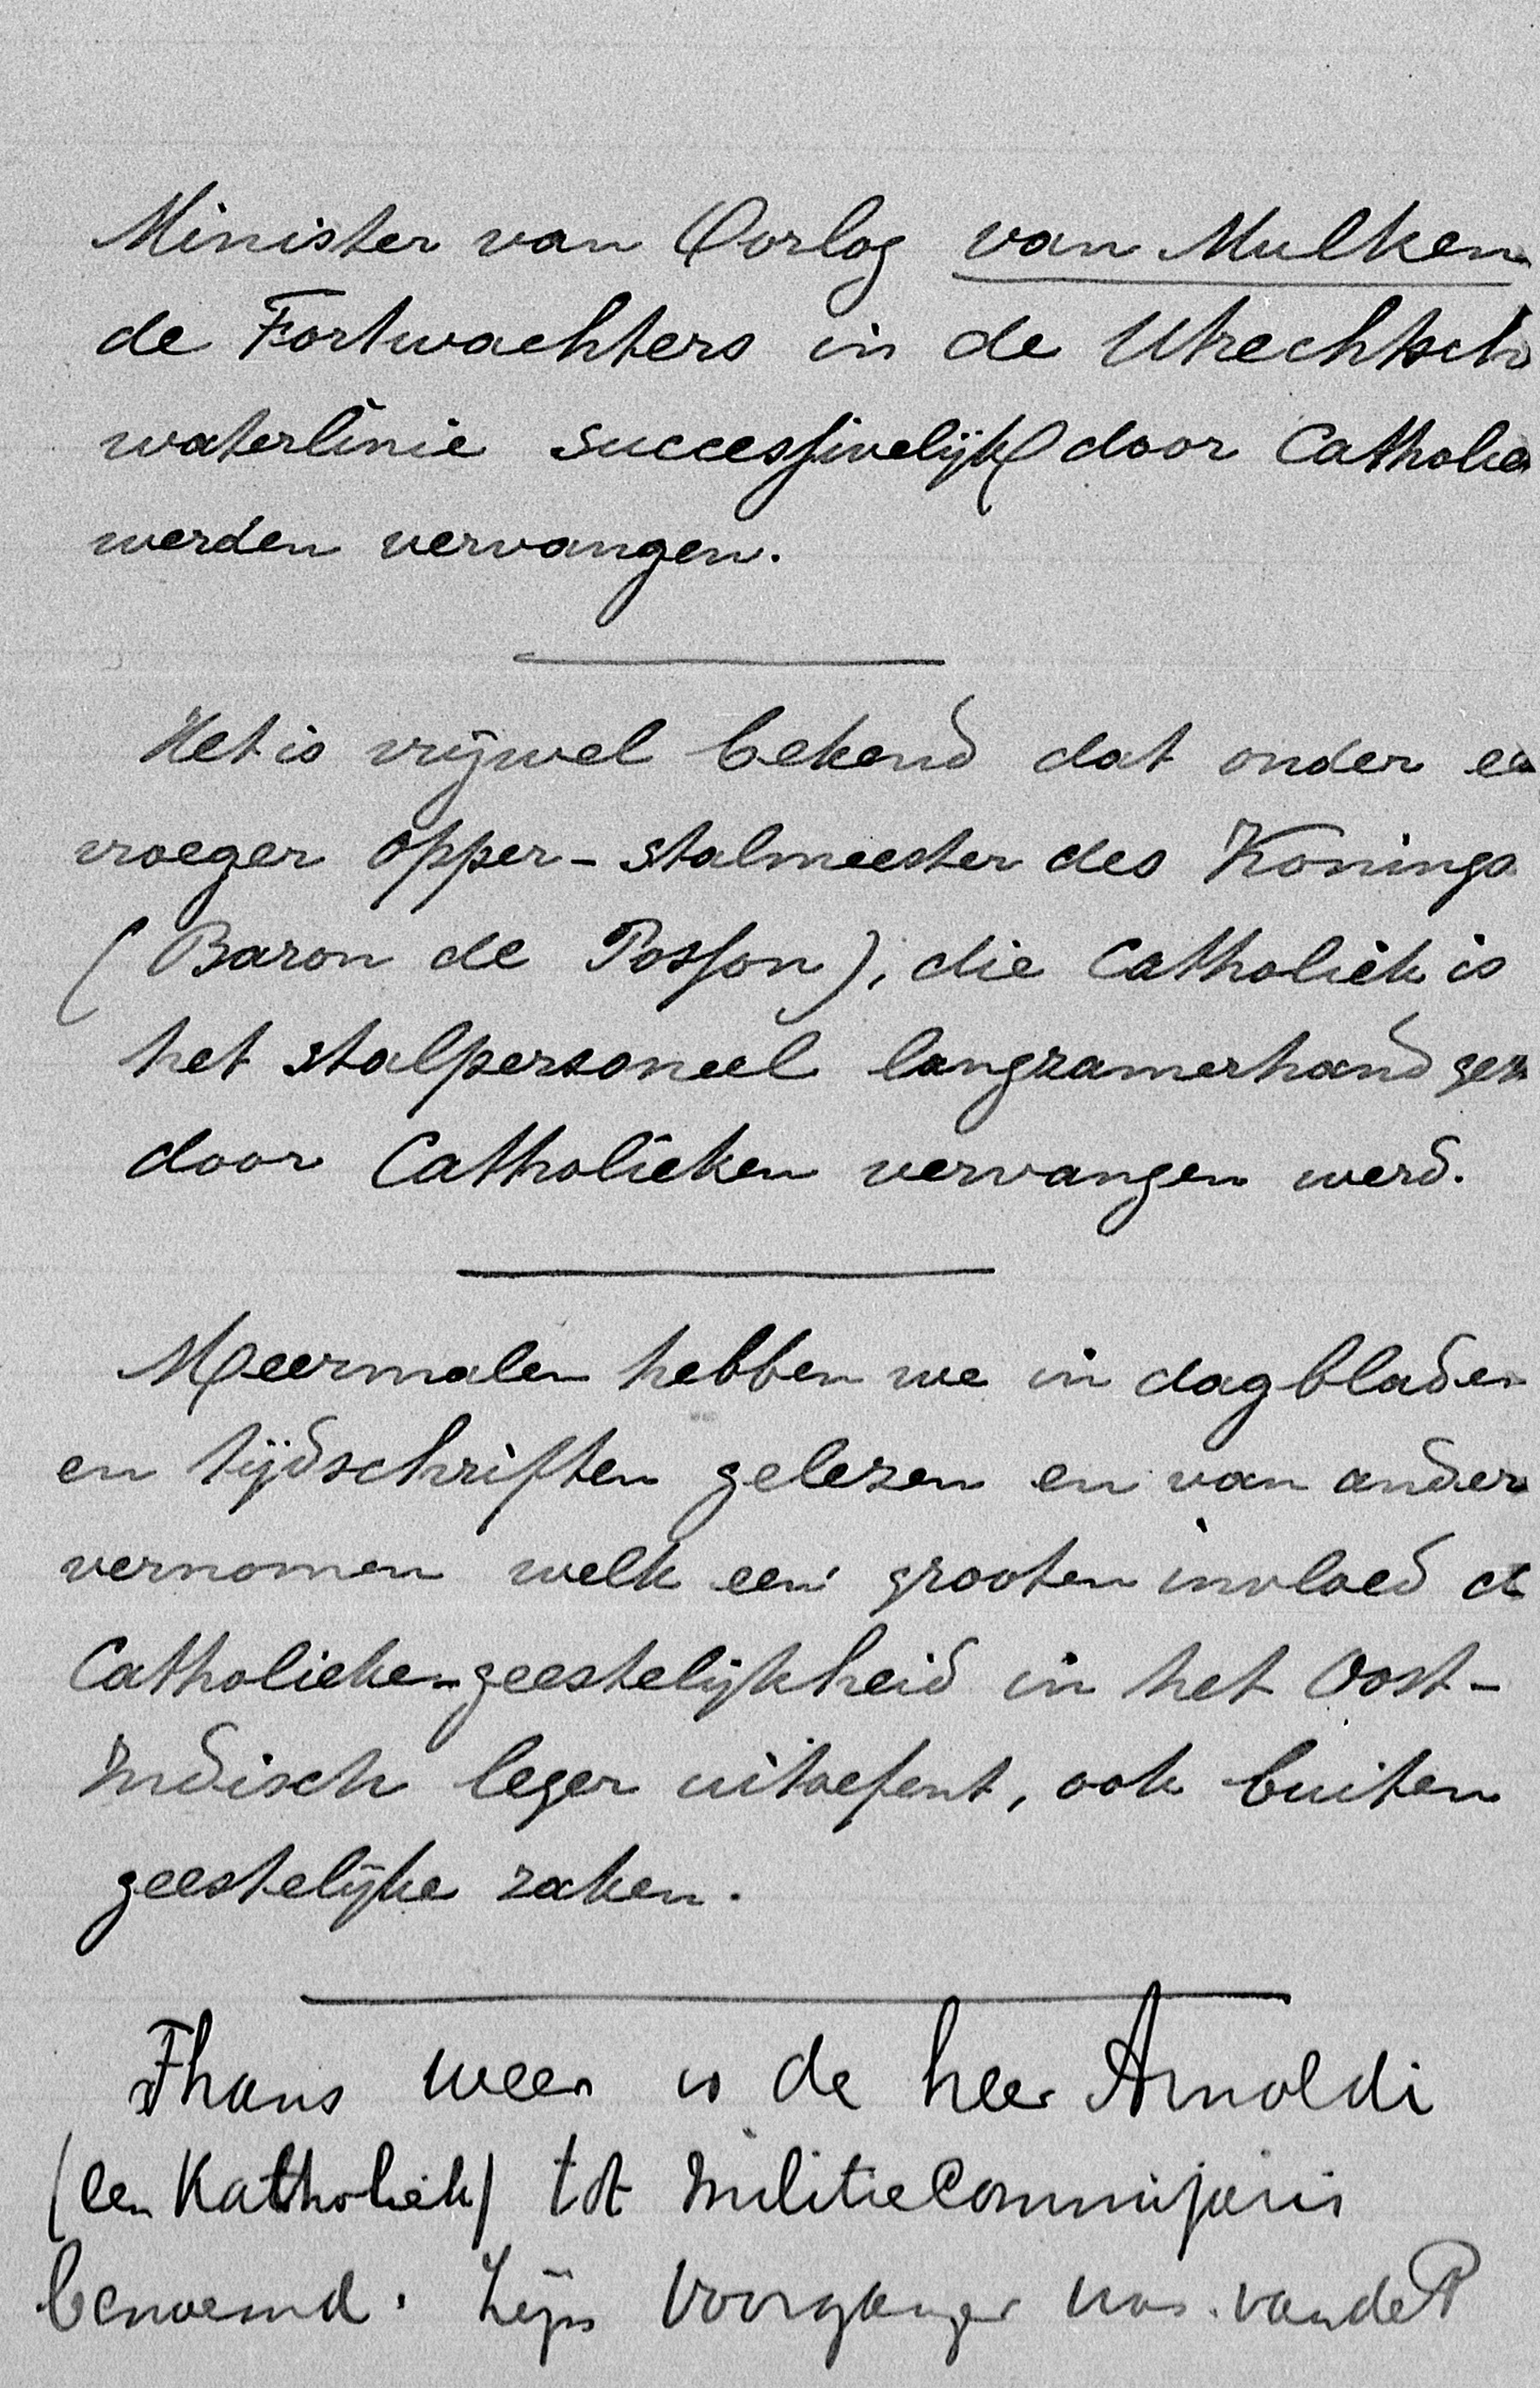 Minister van Oorlog van Mulken
de Fortwachters in de Utrechtsch
waterlinie successivelijk door Catholie
werden vervangen.
Het is vrijwel bekend dat onder ee
vroeger opper-stalmeester des Konings
(Baron de Posson), die Catholiek is
het stalpersoneel langzamerhand
door Catholieken vervangen werd.
Meermalen hebben we in dagbladen
en tijdschriften gelezen en van ander
vernomen welk een grooten invloed d
Catholieke-geestelijkheid in het Oost-
Indisch leger uitoefent, ook buiten
geestelijke zaken.
Thans weer is de heer Arnoldi
(een Katholiek) tot Militie Commissaris
benoemd. Zijn Voorganger was van de P